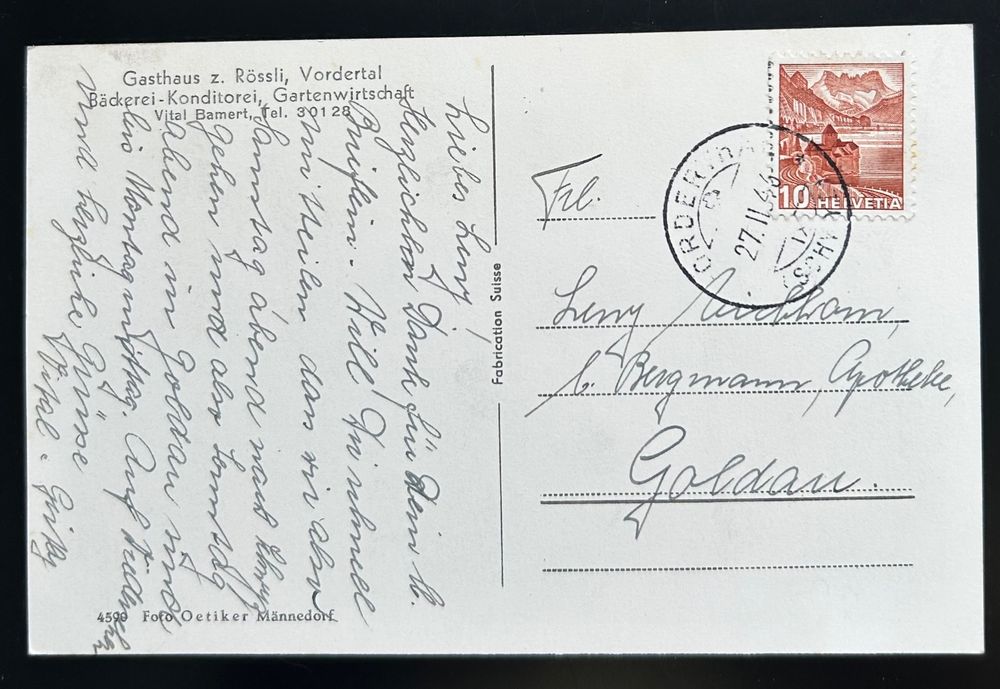 Gasthaus z. Rössli, Vordertal
Bäckerei-Konditorei, Gartenwirtschaft
Vital Bamert, Tel. 3 01 28
Liebes Leny!
Herzlichen Dank für Dein lb.
Brieflein. Will Dir schnell
mitteilen dass wir
Samstag abend nach
gehen und also Sonntag
abend in Goldau sind
bis Montag mittag. Auf
und herzliche Grüsse
Vital.
4590 Foto Oetiker Männedorf
Fabrication Suisse
10 HELVETIA
27.II.46
(SCHWYZ)
Frl.
Leny
b. Bergmann, Apotheke,
Goldau.